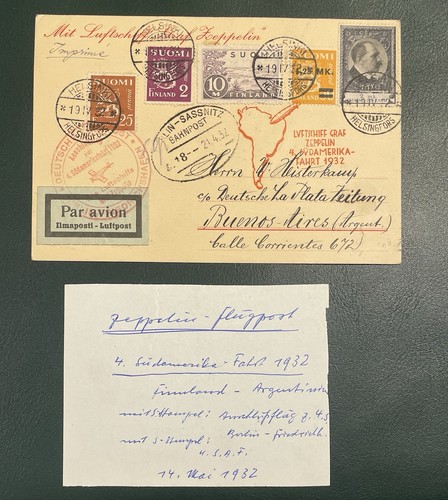 Mit Luftschiff "Graf Zeppelin"
Imprimé
HELSINKI
* 19.IV.32
HELSINGFORS
SUOMI
25
SUOMI
FINLAND 2
SUOMI
10 M
FINLAND
SUOMI
1,25 MK.
BERLIN-SASSNITZ
BAHNPOST
Z. 18 -- 21.4.32
LUFTSCHIFF GRAF
ZEPPELIN
4. SÜDAMERIKA-
FAHRT 1932
DEUTSCHE LUFTPOST
4. Südamerikafahrt 1932
Par avion
Ilmaposti - Luftpost
Herrn W. Heisterkamp
c/o Deutsche La Plata Zeitung
Buenos-Aires (Argent.)
Calle Corrientes 672)
Zeppelin-Flugpost
4. Südamerika-Fahrt 1932
Finnland - Argentinien
mit S Stempel: Anschlußflug z. 4. S
mit S-Stempel: Berlin-Friedrichh.
u. S.A.F.
14. Mai 1932